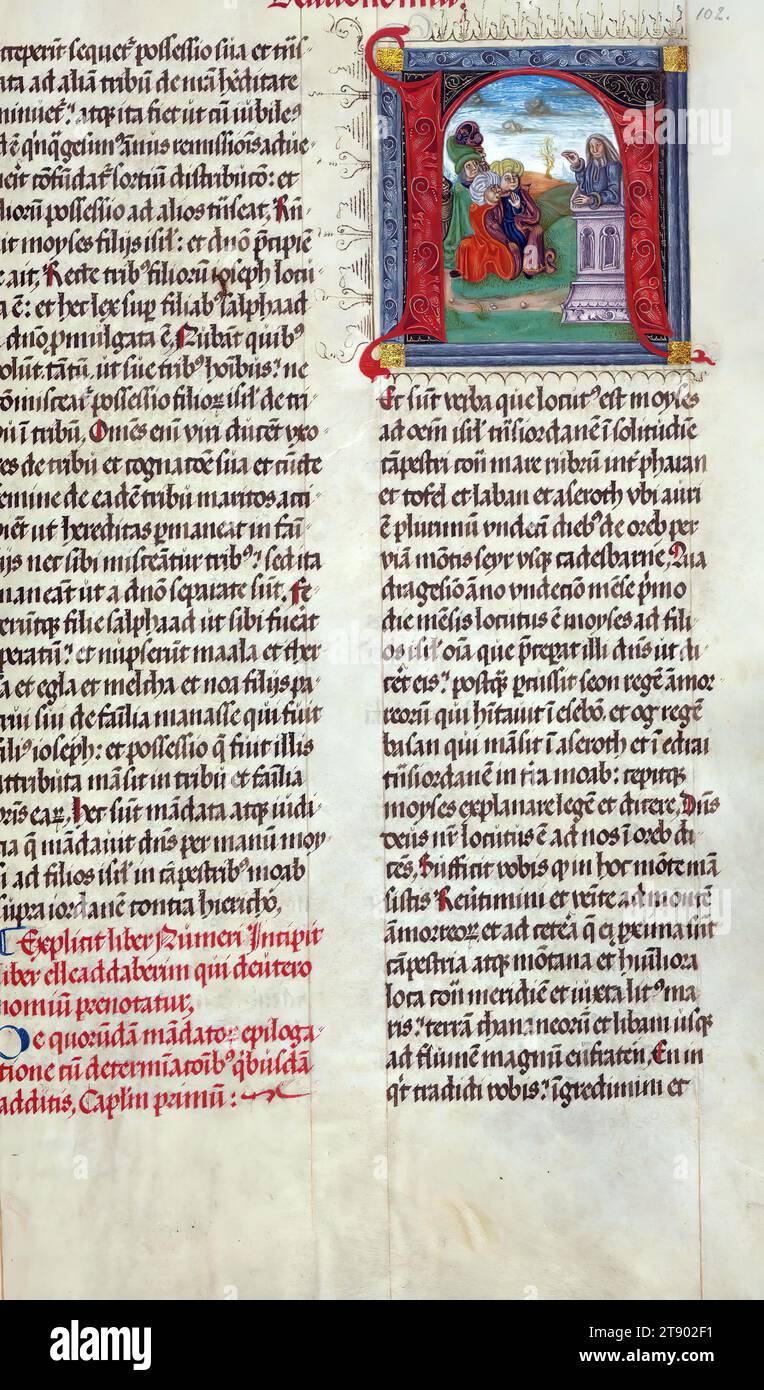 Deutronomiu.
102.
cceperit sequet̄ possessio sua et trāſ
ata ad aliā tribū de mā hēditate
minuet̄. atq̄ ita fiet ut cū iubileꝰ
dē q̄nq̄gesimꝰ annus remissiōis adue
erit cōfundat̄ sortiū distributō: et
liorū possessio ad alios trāseat, Rn̄
it moyses filijs isrl̄: et dn̄o p̄cipiē
e ait, Recte tribꝰ filiorū ioseph locu
a ē: et hec lex sup̄ filiabꝰ salphaad
a dn̄o ꝓmulgata ē, Nubāt quibꝰ
olūt tātū, ut sue tribꝰ hōibus: ne
cōmiscear̄ possessio filioꝝ isrl̄ de tri
bu ī tribū, Omēs enī viri ducēt vxo
res de tribu et cognatōe sua et cūcte
femine de eadē tribu maritos acci
piēt ut hereditas ꝑmaneat in fāī
ijs nec sibi misceātur tribꝰ: sed ita
maneāt ut a dn̄o separate sūt, Fe
erūtq̄ filie salphaad ut sibi fuēat
peratū: et nupserūt maala et ther
sa et egla et melcha et noa filijs pa
trui sui de fāīlia manasse qui fuit
filiꝰ ioseph: et possessio q̄ fuit illis
attributa māsit in tribu et fāīlia
pr̄is eaꝝ, Hec sūt mādata atq̄ iudi
cia q̄ mādauit dn̄s per manū moy
si ad filios isrl̄ in cāpestribꝰ moab
supra iordanē contra hierichō,
Explicit liber Numeri Incipit
liber elleaddaberim qui deutero
nomiū prenotatur,
De quorūdā mādatoꝝ epiloga
tione cū determīatōibꝰ q̄busdā
additis, Caplm̄ primū:
H
Ec sūt verba que locutꝰ est moyses
ad oēm isrl̄ trāsiordanē ī solitudīe
cāpestri cōtͣ mare rubrū intͬ pharan
et tofel et laban et aseroth vbi auri
ē plurimū vndecī diebꝰ de oreb per
viā mōtis seyr vsq̄ cadesbarne, Qua
dragesiō āno vndeciō mēse p̄mo
die mēsis locutus ē moyses ad fili
os isrl̄ oīa que p̄ceperat illi dn̄s ut di
cēt eis: postq̄ꝫ ꝑcussit seon regē āmor
reorū qui hītauit ī esebō, et og regē
basan qui māsit ī aseroth et ī edrai
trāsiordanē in tr̄a moab: cepitq̄ꝫ
moyses explanare legē et dicere, Dn̄s
deus nr̄ locutus ē ad nos ī oreb di
cēs, Sufficit vobis qꝫ in hoc mōte mā
sistis Reuertimini et venite ad mōtē
āmorreoꝝ et ad cetēa q̄ ei ꝓxima sūt
cāpestria atq̄ꝫ mōtana et hūiliora
loca cōtͣ meridiē et iuxta litꝰ ma
ris: terrā chananeorū et libani usq̄ꝫ
ad flumē magnū eufraten, En in
q̄t tradidi vobis: īgredimini et
alamy
Image ID: 2T902F1
www.alamy.com